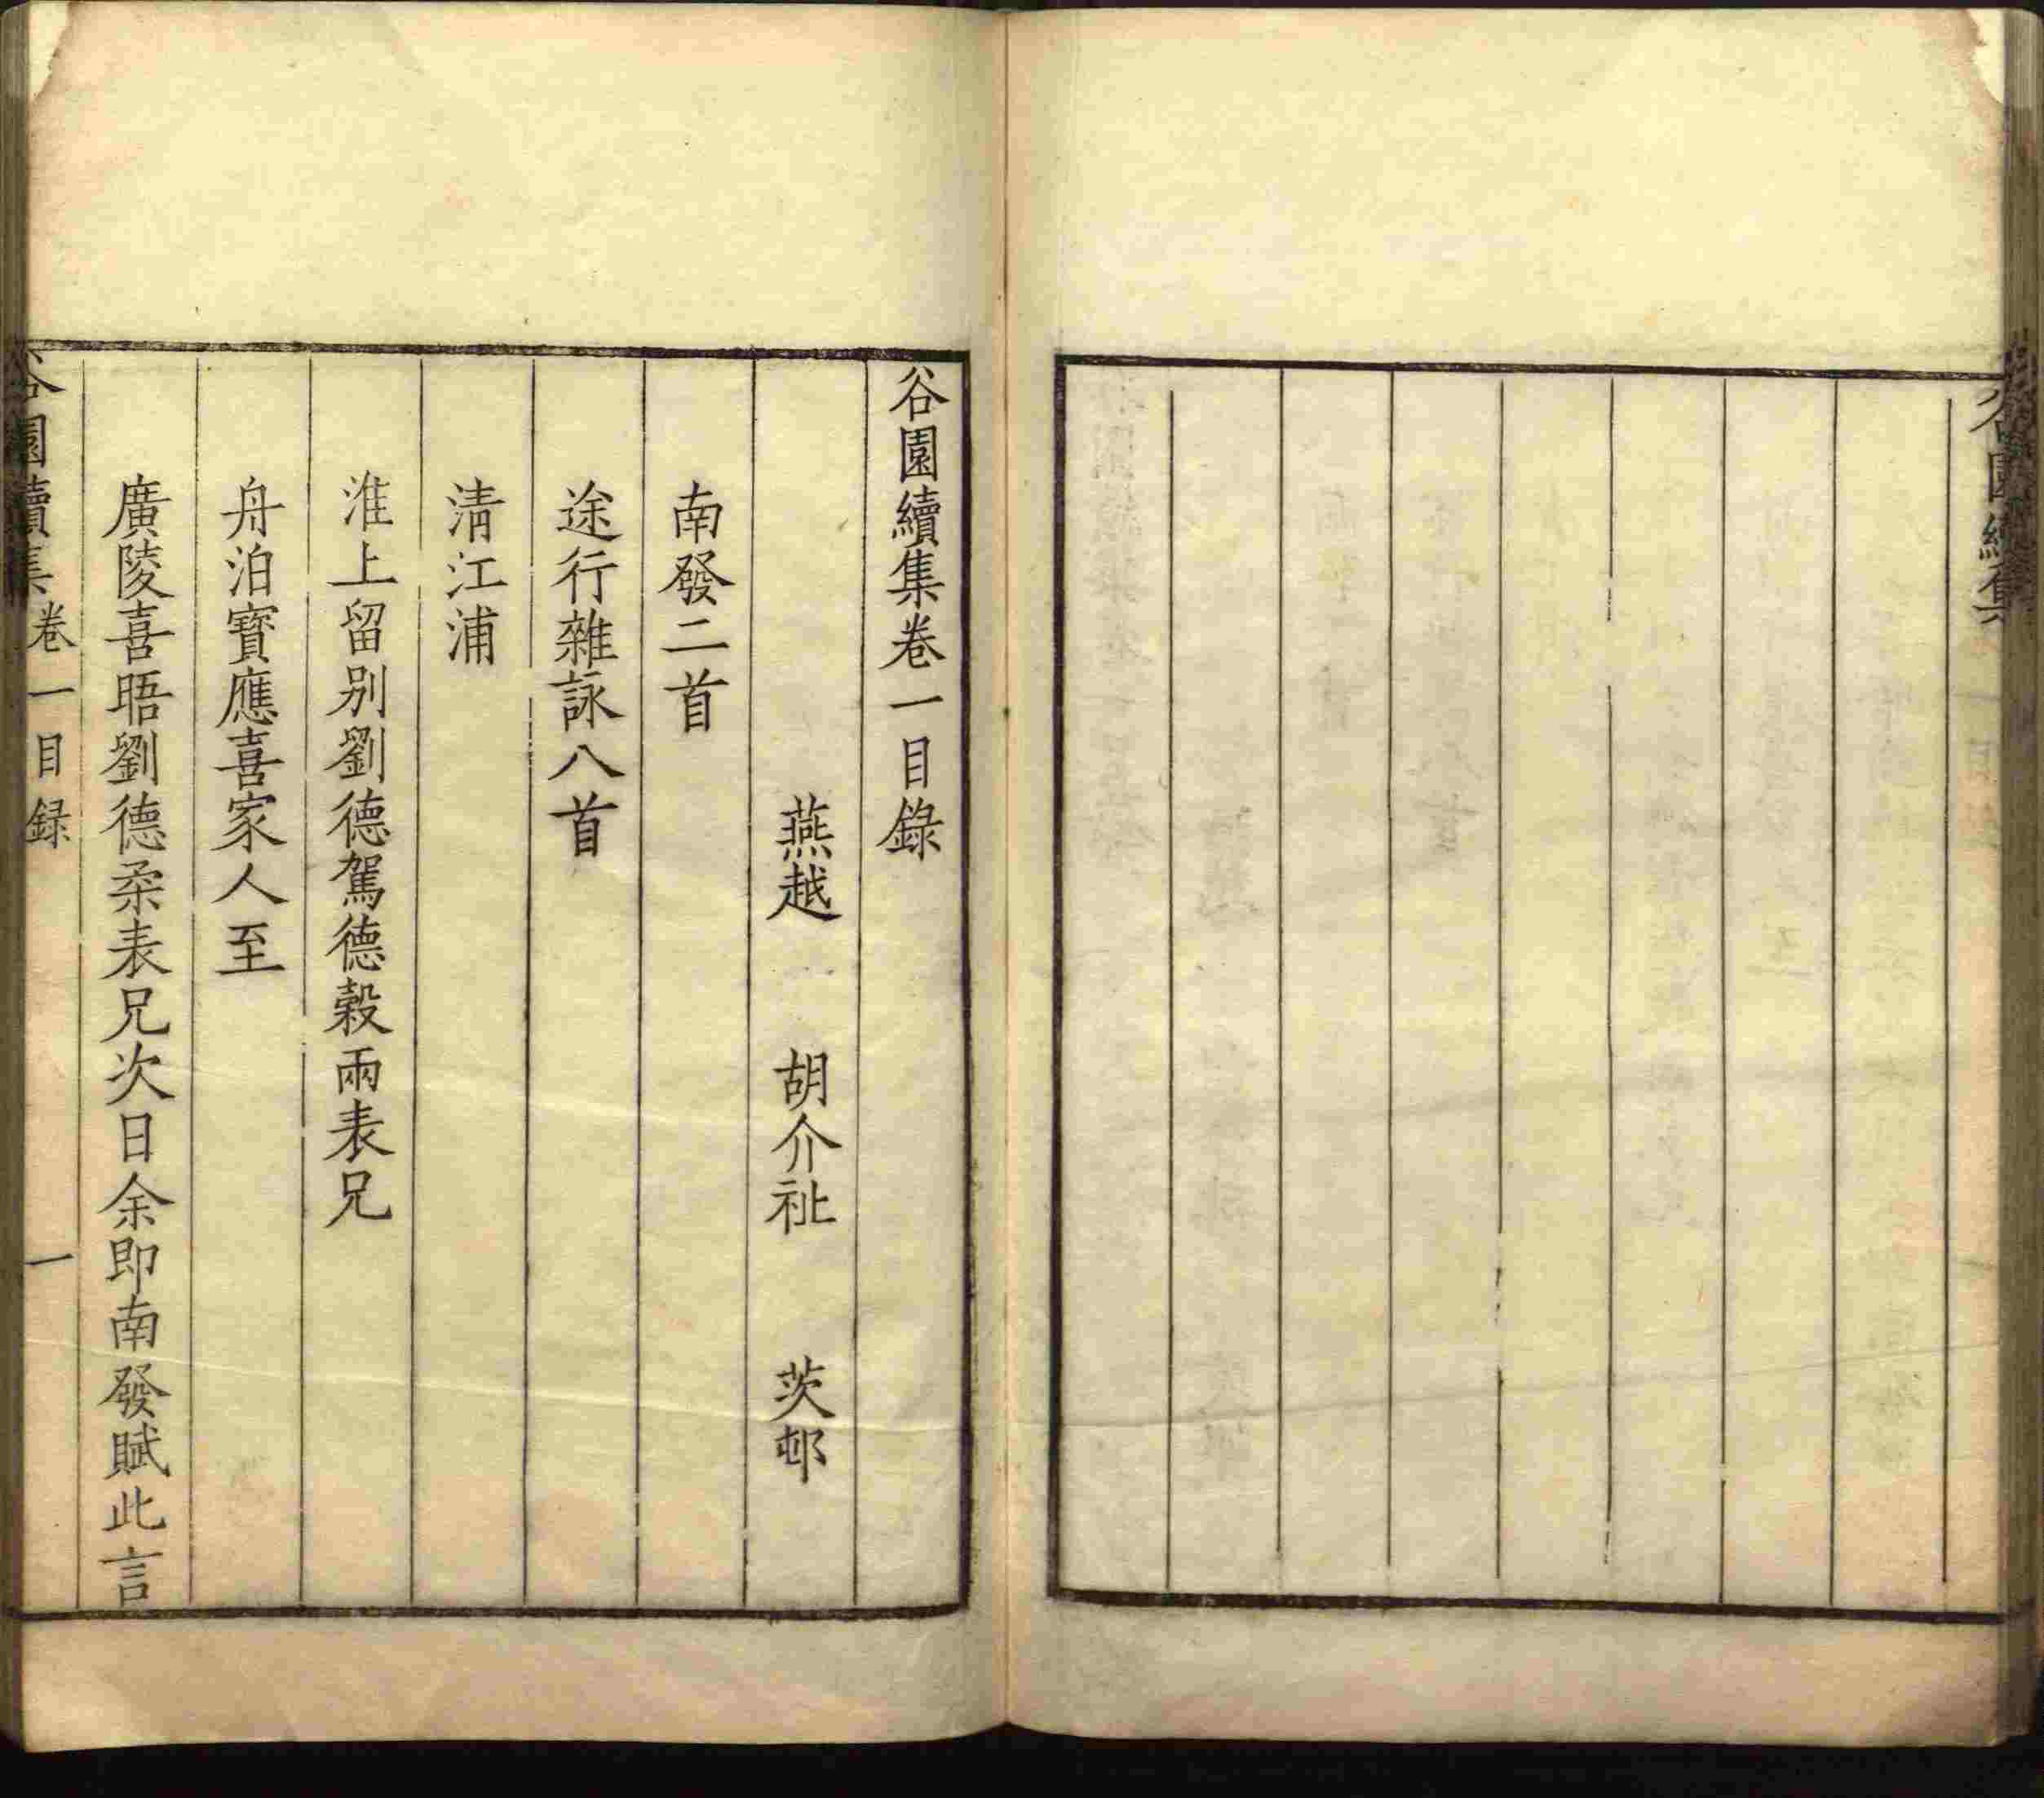 谷園續集
谷園續集卷一目錄
燕越 胡介祉 茨邨
南發二首
途行雜詠八首
清江浦
淮上留别劉德駕德穀兩表兄
舟泊寶應喜家人至
廣陵喜晤劉德柔表兄次日余即南發賦此言
谷園續集 卷一目録 一